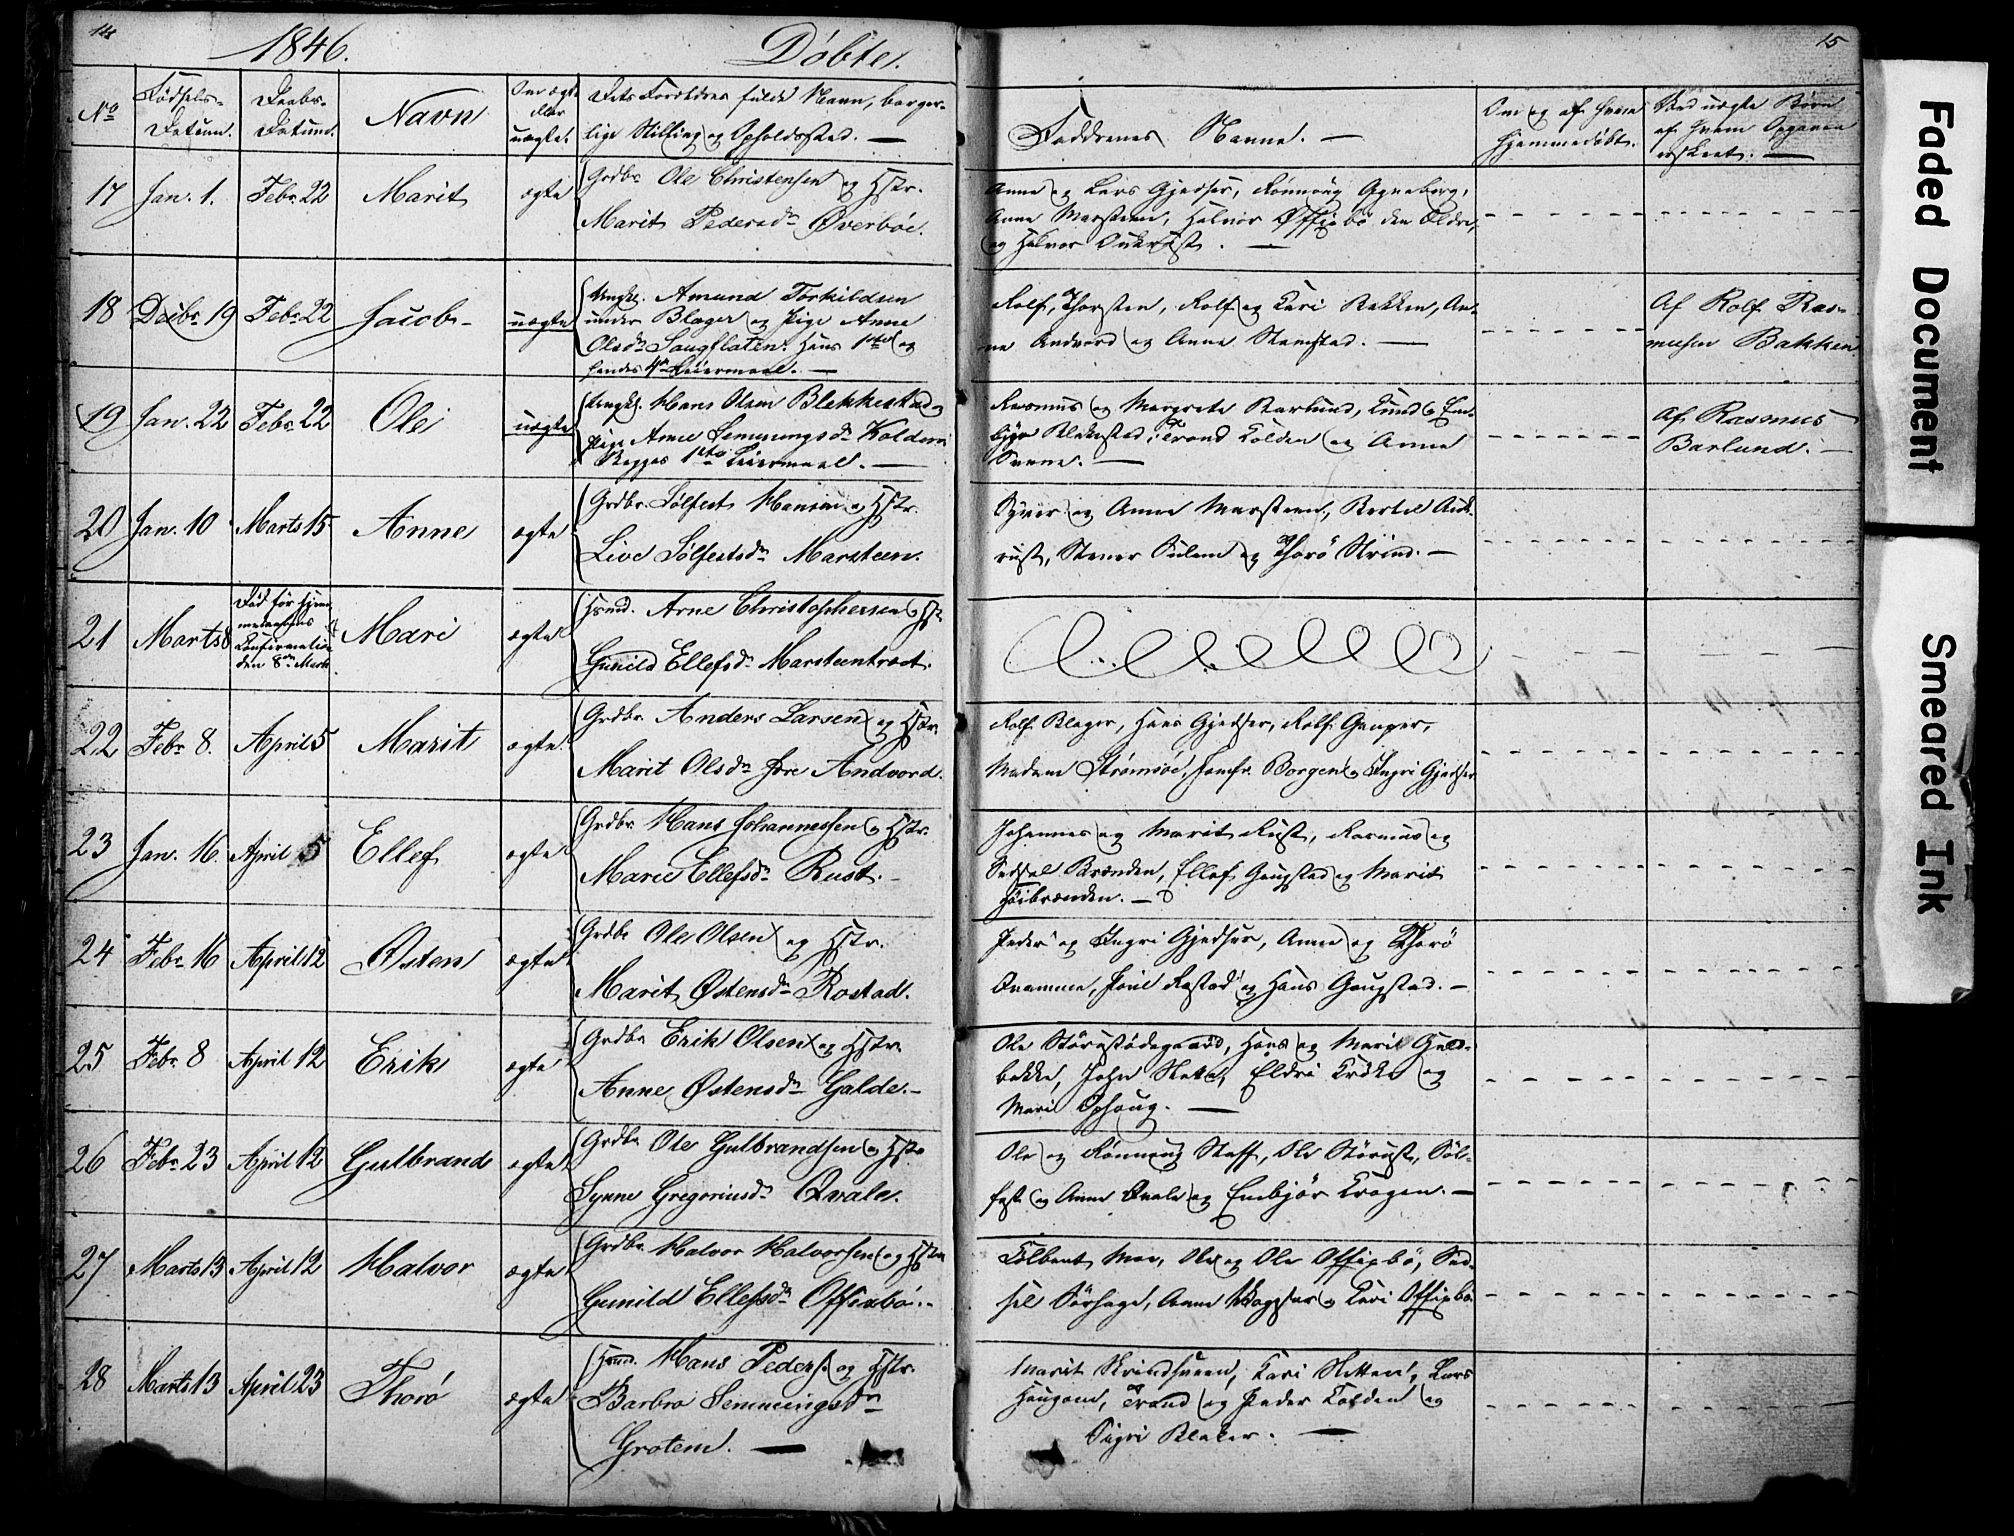 14
1846.
Døbte.
15
No
Fødsels-
Datum.
Daabs-
Datum.
Navn
Om ægte
eller
uægte.
Dets Forældres fulde Navn, borger-
lige Stilling og Opholdssted. —
Faddrenes Navne. —
Om og af hvem
hjemmedøbt.
Ved uægte Børn
af hvem Opgaven
er skeet. —
17 Jan. 1. Febr. 22 Marit ægte
Grdbr. Ole Christensen og Hstr.
Marit Pedersdr Øverbøe.
Anne og Lars Gjedser,
Anne Marsteen, Halvor Offigsbø den Ældre,
og Halvor
18 Decbr. 19 Febr. 22 Jacob - uægte
Ungkl. Amund Torkildsen
under Blager og Pige Anne
Olsdr Saugflaten. Hans 1ste og
hendes 4de Leiermaal. —
Rolf, Thorsten, Rolf og Kari Bakken, An-
ne Andvord og Anne Stamstad. —
Af Rolf Ras-
mussen Bakken
19 Jan. 22 Febr. 22 Ole uægte
Ungkl. Hans Olsen Blekkestad og
Pige Anne Semmingsdr Kolden
Begges 1ste Leiermaal. —
Rasmus og Margrete Barlund, Knud og Em-
Trond Kolden og Anne
Af Rasmus
Barlund. —
20 Jan. 10 Marts 15 Anne ægte
Grdbr. Sølfest Hansen og Hstr.
Live Sølfestsdr Marsteen.
Syver og Anne Marsteen, Bertel Auk-
rust, Stener Sulem og Thorø Skrind. —
21 Marts 8 Død før Hjem-
medaabens
Confirmation
den 8de Marts.
Mari ægte
Hsmd. Arne Christophersen og Hstr.
Gunild Ellefsdr Marsteentræet.
22 Febr. 8. April 5 Marit ægte
Grdbr. Anders Larsen og Hstr.
Marit Olsdr Andvord.
Rolf Blager, Hans Gjedser, Rolf Gauper,
Madam Strømsøe, Jomfr. Borgen og Ingri Gjedser
23 Jan. 16. April 5 Ellef ægte
Grdbr. Hans Johannessen og Hstr.
Marie Ellefsdr Rust. -
Johannes og Marit Rust, Rasmus og
Sidsel Brænden, Ellef Gaugstad og Marit
Høibrænden. —
24 Febr. 16 April 12 Østen ægte
Grdbr. Ole Olsen og Hstr.
Marit Østensdr Rostad.
Peder og Ingri Gjedser, Anne og Thorø
Qvamme, Poul Rostad og Hans Gaugstad. —
25 Febr. 8 April 12 Erik ægte
Grdbr. Erik Olsen og Hstr.
Anne Østensdr Galde. -
Ole Størustødegaard, Hans og Marit Guld-
bekke, John Slette, Eldri Kroken og
Mari Ophoug. —
26 Febr. 23 April 12 Gulbrand ægte
Grdbr. Ole Gulbrandsen og Hstr.
Synne Gregoriusdr Qvale.
Ole og Rønnoug Staff, Ole Størust, Søl-
fest og Anne Qvale og Embjør Krogen. —
27 Marts 13 April 12 Halvor ægte
Grdbr. Halvor Halvorsen og Hstr.
Gunild Ellefsdr Offixbø. -
Tolbent Moe, Ole og Ole Offixbø, Sid-
sel Sørhage, Anne og Kari Offixbø
28 Marts 13 April 23 Thorø ægte
Hsmd. Hans Peders. og Hstr.
Barbro Semmingsdr
Grotem. —
Marit Skrindsveen, Kari Sletten, Lars
Haugom, Trond og Peder Kolden og
Sigri Bleker. —
Faded Document
Smeared Ink